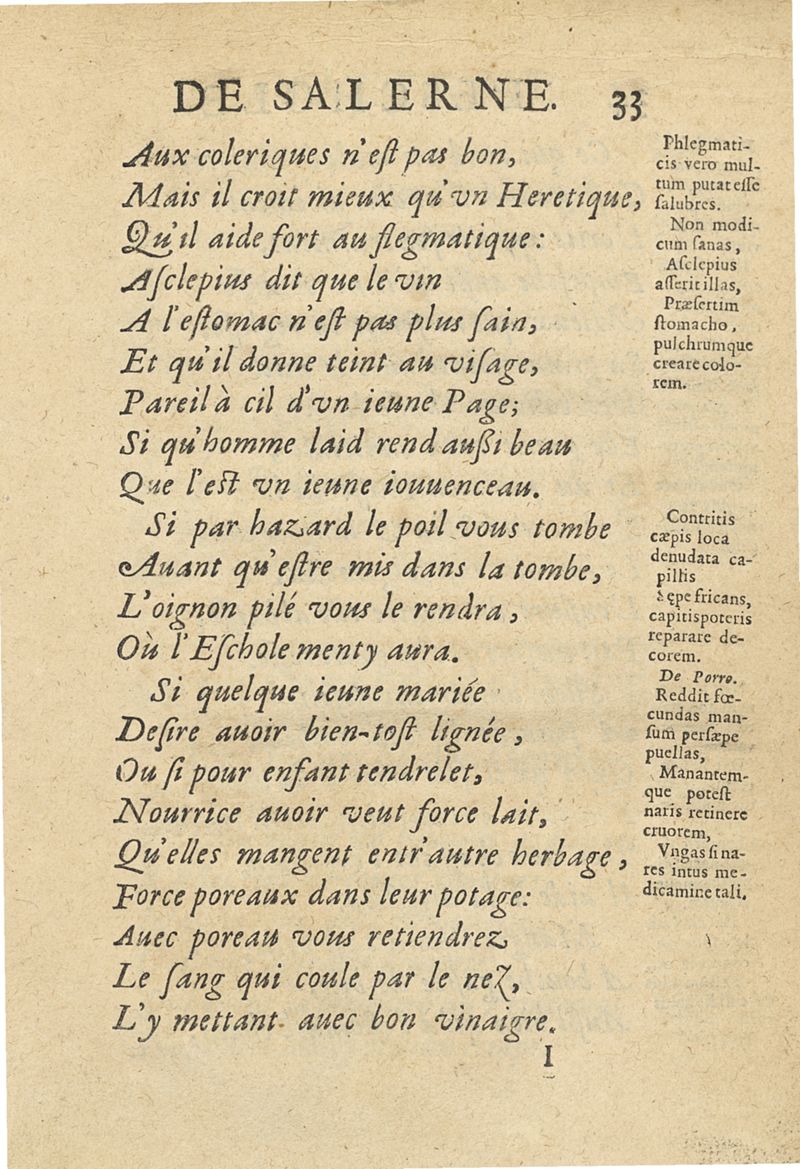 DE SALERNE. 33
Aux coleriques n'eſt pas bon,
Mais il croit mieux qu'vn Heretique,
Qu'il aide fort au flegmatique:
Aſclepius dit que le vin
A l'eſtomac n'eſt pas plus ſain,
Et qu'il donne teint au viſage,
Pareil à cil d'vn ieune Page;
Si qu'homme laid rend auſſi beau
Que l'eſt vn ieune iouuenceau.
Si par hazard le poil vous tombe
Auant qu'eſtre mis dans la tombe,
L'oignon pilé vous le rendra,
Où l'Eſchole menty aura.
Si quelque ieune mariée
Deſire auoir bien-toſt lignée,
Ou ſi pour enfant tendrelet,
Nourrice auoir veut force lait,
Qu'elles mangent entr'autre herbage,
Force poreaux dans leur potage:
Auec poreau vous retiendrez
Le ſang qui coule par le nez,
L'y mettant auec bon vinaigre.
I
Phlegmati-
cis vero mul-
tum putat eſſe
ſalubres.
Non modi-
cum ſanas,
Aſclepius
aſſerit illas,
Præſertim
ſtomacho,
pulchrumque
creare colo-
rem.
Contritis
cæpis loca
denudata ca-
pillis
Sępe fricans,
capitis poteris
reparare de-
corem.
De Porro.
Reddit fœ-
cundas man-
ſum perſæpe
puellas,
Manantem-
que poteſt
naris retinere
cruorem,
Vngas ſi na-
res intus me-
dicamine tali.